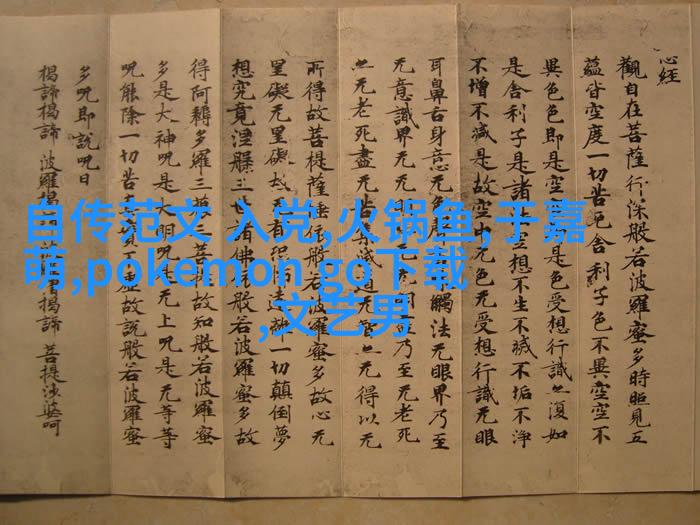 心経
觀自在菩薩行深般若波羅蜜多時照見五
蘊皆空度一切苦厄舍利子色不異空空不
異色色即是空空是色受想行識亦復如
是舍利子是諸法空想不生不滅不垢不淨
不增不減是故空中无色无受想行識无眼
耳鼻舌身意无色聲觸法无眼界乃至
无意識界无无明乃至无老死
亦无老死盡无集滅道无亦无得以无
所得故菩提薩埵依般若波羅蜜多故心无
罣礙无罣礙故有恐怖遠離一切顛倒夢
想究竟涅槃三世佛般若波羅蜜多故
得阿耨多羅三菩故知般若波羅蜜
多是大神呪是大明呪是无上呪是无等等
呪能除一切苦虛故說般若波羅蜜
多呪即說呪曰
揭諦揭諦 波羅揭揭諦 菩提娑婆呵
自传范文 入党,火锅鱼,于嘉
萌,pokemon go下载
,文艺男